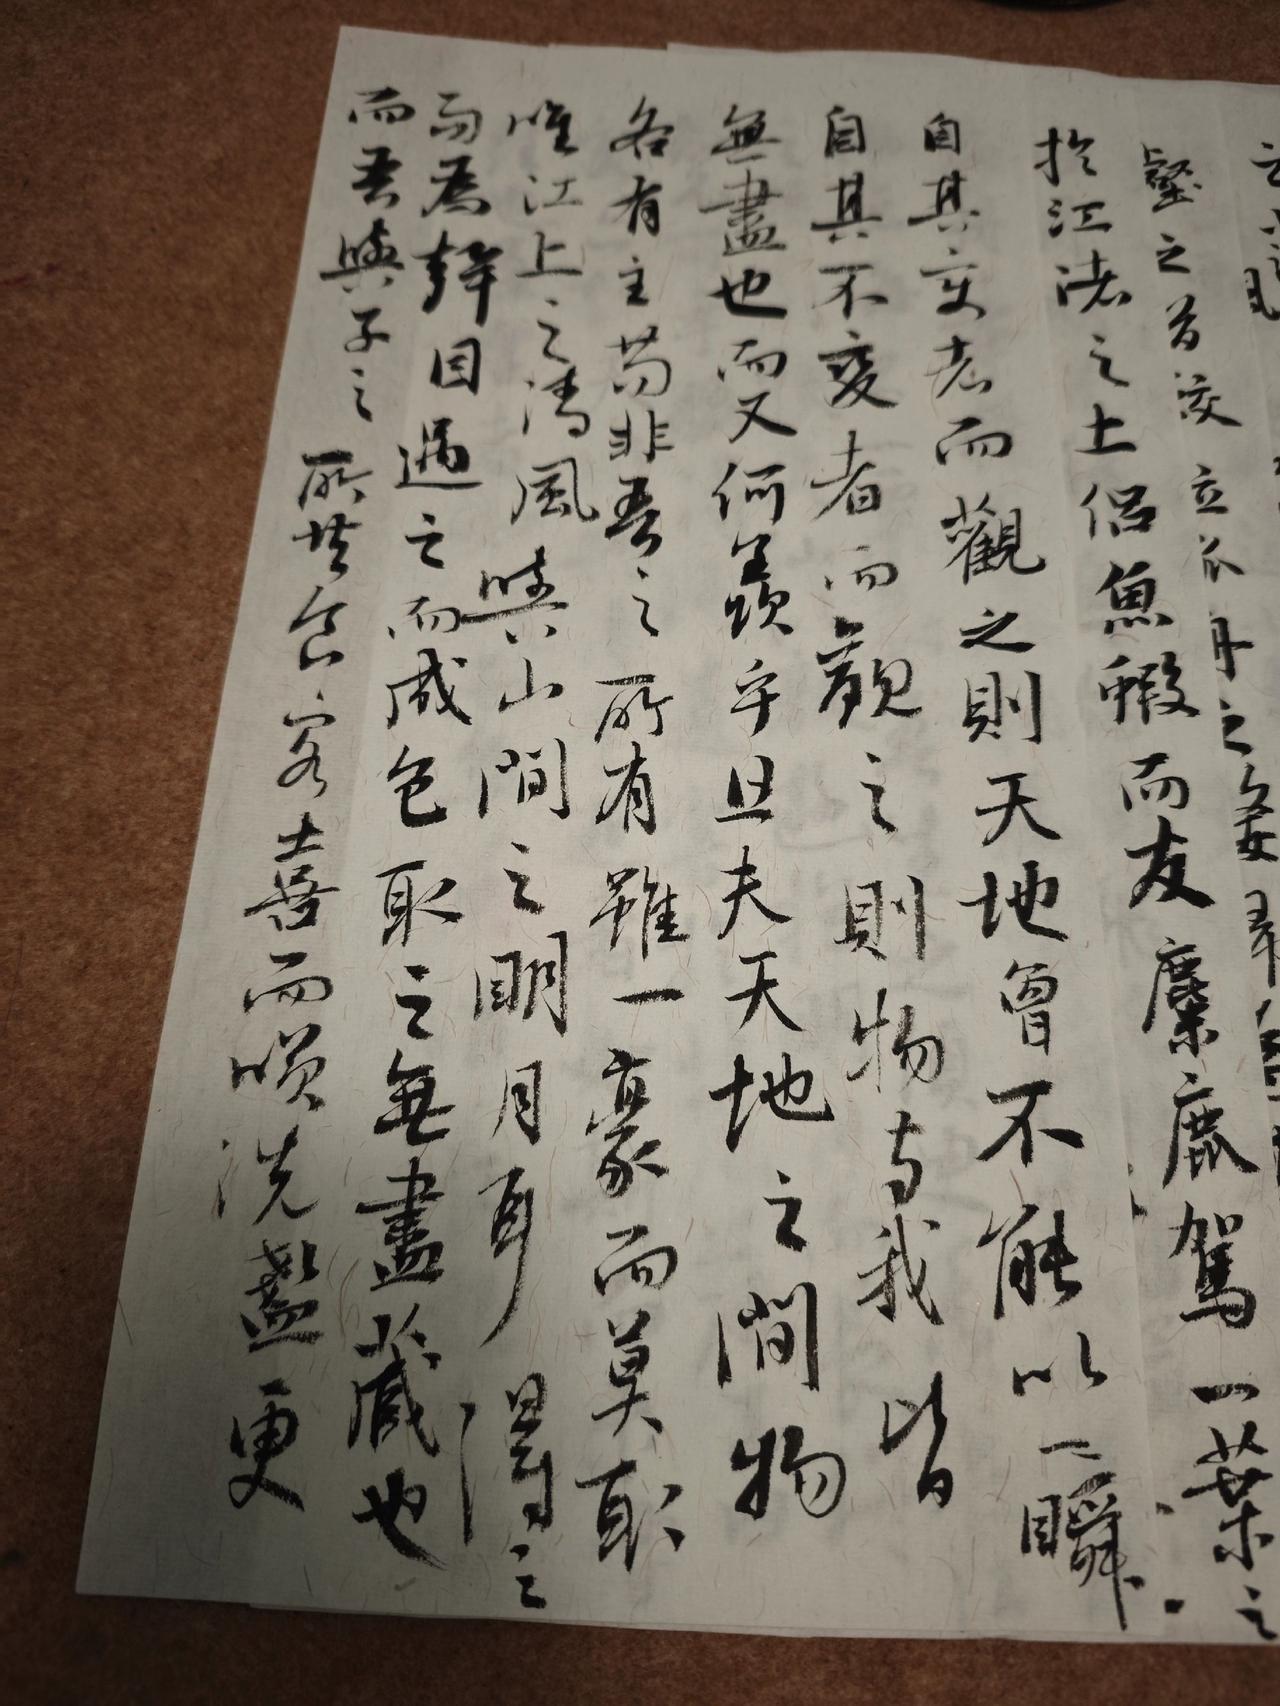 於江渚之上侶魚蝦而友麋鹿駕一葉之
自其变者而觀之則天地曾不能以一瞬
自其不變者而觀之則物与我皆
無盡也而又何羨乎且夫天地之間物
各有主苟非吾之所有雖一豪而莫取
唯江上之清風與山間之明月耳得之
而為聲目遇之而成色取之無盡藏也
而吾與子之所共食客喜而咲洗盞更